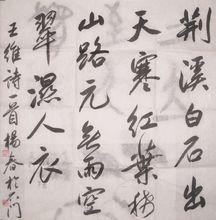 荆溪白石出
天寒红叶稀
山路元无雨空
翠湿人衣
王维诗首杨春於门